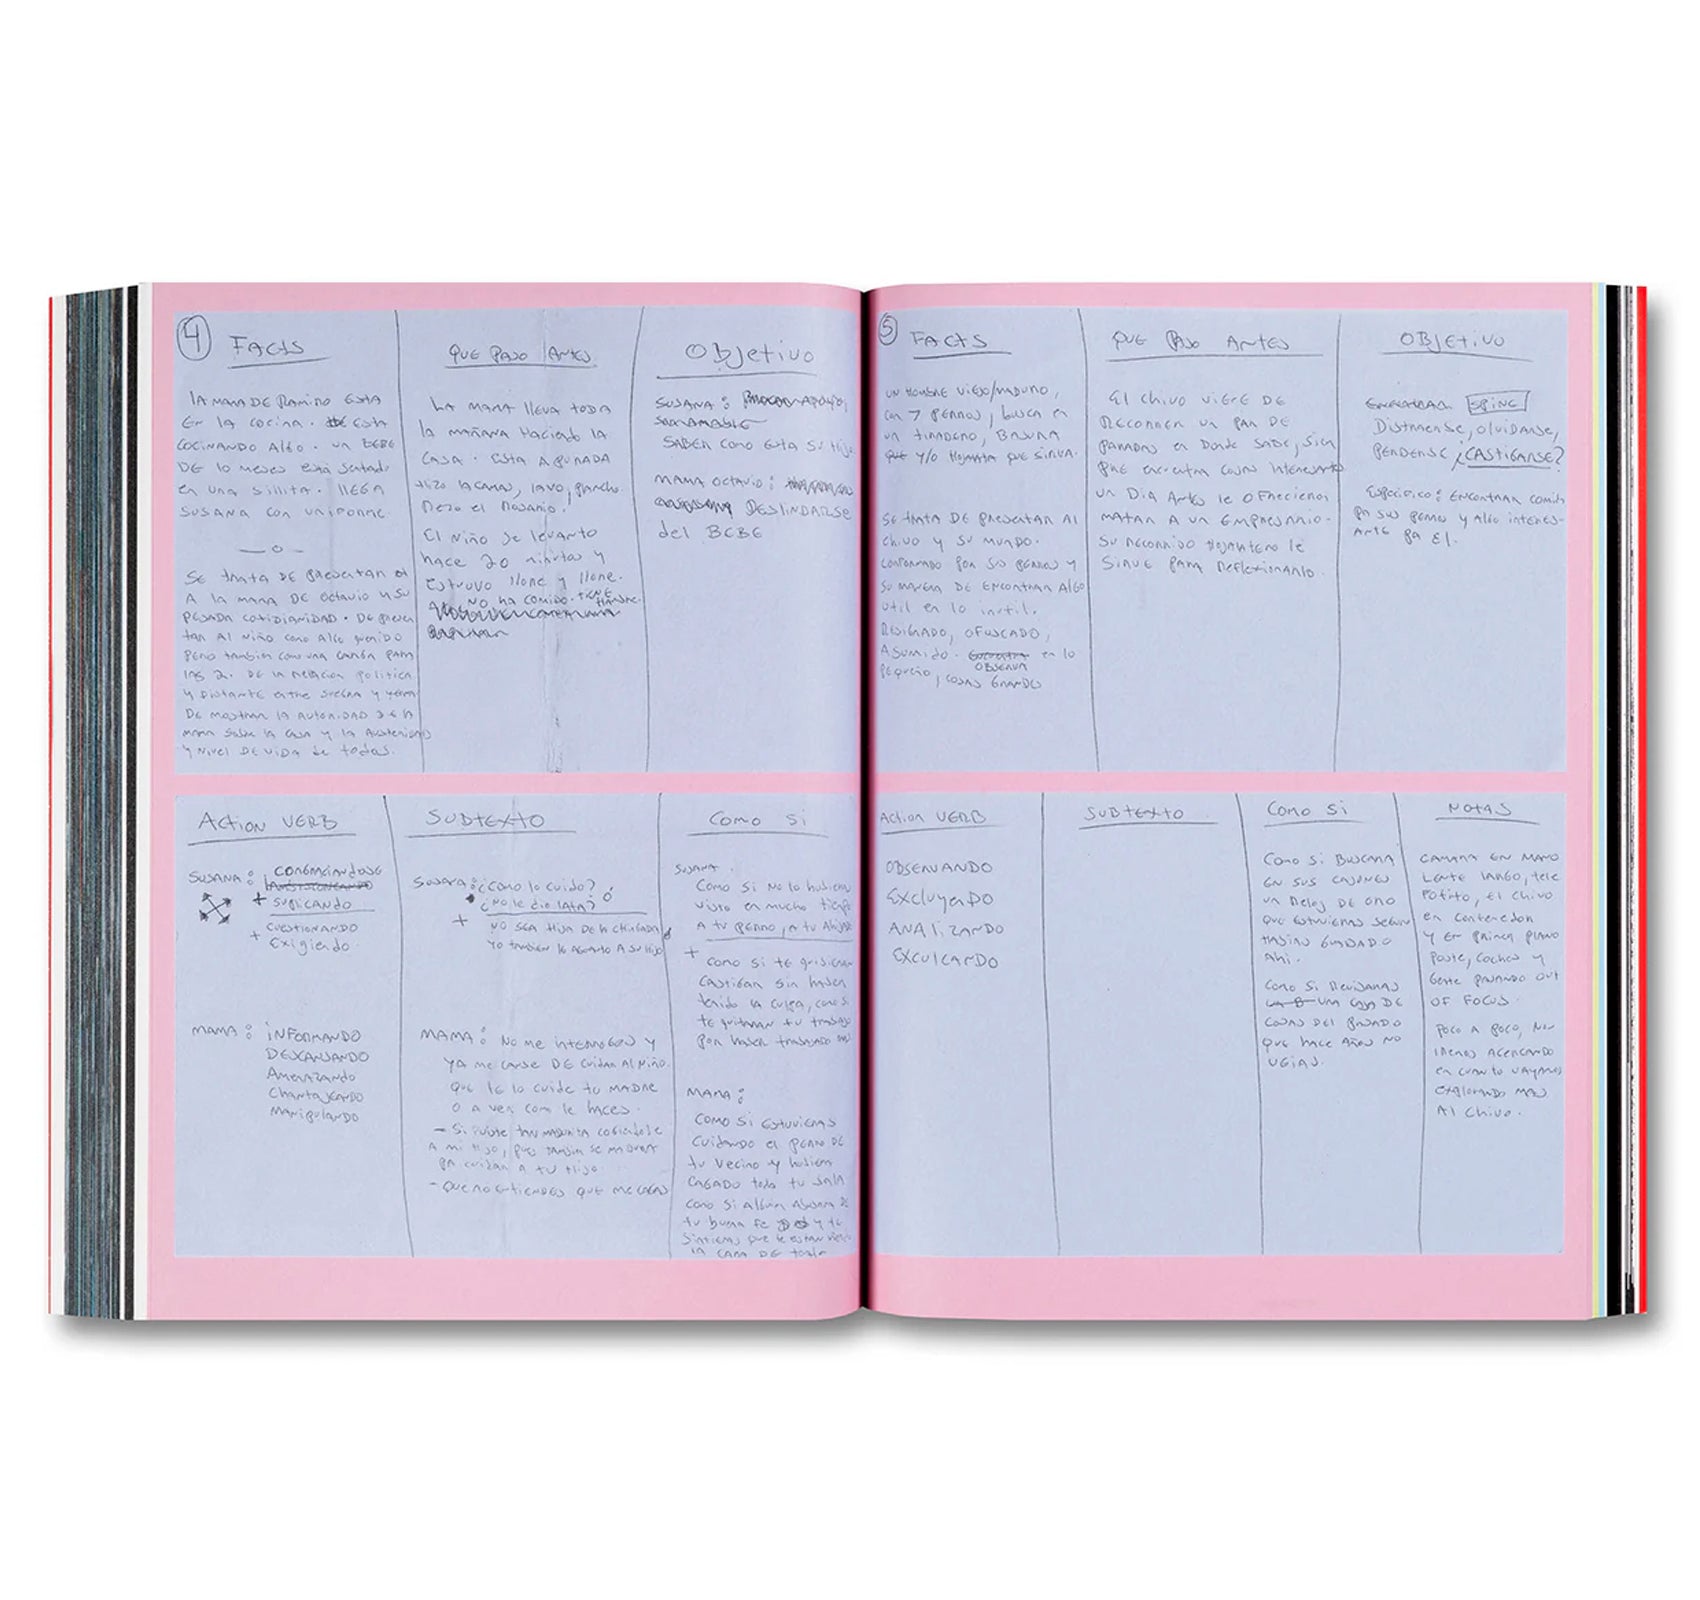 4
FACTS
LA MAMA DE RAMIRO ESTA
EN LA COCINA. ESTA
COCINANDO ALGO. UN BEBE
DE 10 MESES ESTA SENTADO
EN UNA SILLITA. LLEGA
SUSANA CON UNIFORME.
— o —
SE TRATA DE PRESENTAR
A LA MAMA DE OCTAVIO Y SU
PESADA COTIDIANIDAD. DE PRESEN
TAR AL NIÑO COMO ALGO QUERIDO
PERO TAMBIEN COMO UNA CARGA PARA
LAS 2. DE LA RELACION POLITICA
Y DISTANTE ENTRE SUEGRA Y YERNA
DE MOSTRAR LA AUTORIDAD DE LA
MAMA SOBRE LA CASA Y LA AUSTERIDAD
Y NIVEL DE VIDA de todos.
QUE PASO ANTES
LA MAMA lleva TODA
la MAÑANA HACIENDO LA
CASA. ESTA APURADA
HIZO LA CAMAS, LAVO, PLANCHO.
REZO el ROSARIO.
El NIÑO se levanto
hace 20 minutos y
ESTUVO llore y llore.
NO HA COMIDO. TIENE HAMBRE.
Objetivo
SUSANA:
SABER COMO ESTA SU HIJO
MAMA OCTAVIO:
DESLINDARSE
del BEBE
ACTION VERB
SUSANA: CONGRACIANDOSE
+ SUPLICANDO
CUESTIONANDO
+ Exigiendo
MAMA: INFORMANDO
DESCANSANDO
AMENAZANDO
CHANTAJEANDO
MANIPULANDO
SUBTEXTO
SUSANA: ¿COMO lo CUIDO? ó
¿NO le dio lata? ó
+ NO SEA HIJA DE LA CHINGADA
YO TAMBIEN le AGUANTO A SU HIJO
MAMA: NO me interrogues y
YA me CANSE DE CUIDAR AL NIÑO.
QUE te lo cuide tu MADRE
O A ver como le haces.
- Si PUDISTE TAN MADURITA COGIENDOTE
A mi HIJO, PUES TAMBIEN SE MADURA
PA CUIDAR A TU HIJO.
- QUE NO ENTIENDES QUE ME CAGAS
COMO SI
SUSANA:
COMO SI NO lo HUBIERAS
VISTO en MUCHO tiempo
A tu PERRO, A tu AHIJADO
+ COMO SI te QUISIERAN
CASTIGAR SIN HABER
tenido LA CULPA, COMO SI
te QUITARAN tu TRABAJO
POR HABER TRABAJADO
MAMA:
COMO SI ESTUVIERAS
CUIDANDO el PERRO DE
tu VECINO Y HUBIERA
CAGADO TODA tu SALA
COMO SI ALGUIEN ABUSARA DE
tu buena Fe y te
SINTIERAS QUE te ESTAN VIENDO
LA CARA DE
5
FACTS
UN HOMBRE VIEJO/MADURO,
CON 7 PERROS, BUSCA en
UN TIRADERO, BASURA
Y/O ROPITA QUE SIRVA.
SE TRATA DE PRESENTAR AL
CHIVO Y SU MUNDO.
CONFORMADO POR SUS PERROS Y
SU MANERA DE ENCONTRAR ALGO
UTIL EN LO INUTIL.
RESIGNADO, OFUSCADO,
ASUMIDO. OBSERVA EN LO
PEQUEÑO, COSAS GRANDES
QUE PASO ANTES
El CHIVO VIENE DE
RECORRER UN PAR DE
PARADAS en DONDE SABE, SIEM
PRE ENCUENTRA COSAS INTERESANTES
UN DIA ANTES le OFRECIERON
MATAR A UN EMPRESARIO.
SU RECORRIDO le
SIRVE PARA REFLEXIONARLO.
OBJETIVO
ENCONTRAR SPINE
DISTRAERSE, OLVIDARSE,
PERDERSE ¿CASTIGARSE?
ESPECIFICO: ENCONTRAR COMIDA
PA SUS PERROS Y ALGO INTERES-
ANTE PA EL.
ACTION VERB
OBSERVANDO
EXCLUYENDO
ANALIZANDO
EXCULCANDO
SUBTEXTO
COMO SI
COMO SI BUSCARA
EN SUS CAJONES
UN RELOJ DE ORO
QUE ESTUVIERAS SEGURO
HABIAS GUARDADO
AHI.
COMO SI REVISARAS
UNA CAJA DE
COSAS DEL PASADO
QUE HACE AÑOS NO
VEIAS.
NOTAS
CAMARA EN MANO
LENTE LARGO, TELE
FOTITO, EL CHIVO
en CONTENEDOR
Y EN PRIMER PLANO
POSTE, COCHES Y
GENTE PASANDO OUT
OF FOCUS.
POCO A POCO, NOS
IREMOS ACERCANDO
en CUANTO VAYAMOS
EXPLORANDO MAS
Al CHIVO.